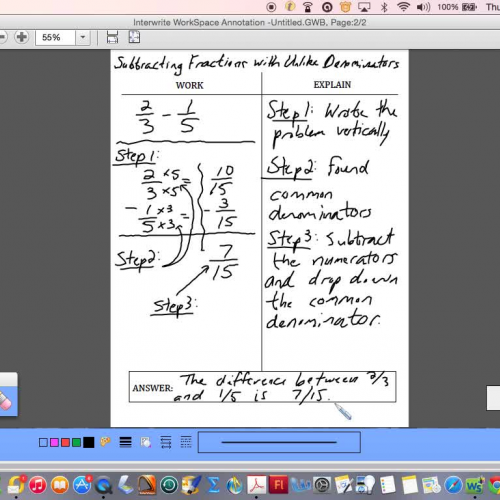 100%
Thu
Interwrite WorkSpace Annotation -Untitled.GWB, Page:2/2
55%
Subtracting Fractions with Unlike Denominators
WORK
2/3 - 1/5
Step 1:
2 x5 = 10
3 x5 15
- 1 x3 = - 3
5 x3 15
Step 2:
7
15
Step 3:
EXPLAIN
Step 1: Wrote the
problem vertically
Step 2: Found
common
denominators
Step 3: Subtract
the numerators
and drop down
the common
denominator.
ANSWER: The difference between 2/3
and 1/5 is 7/15.